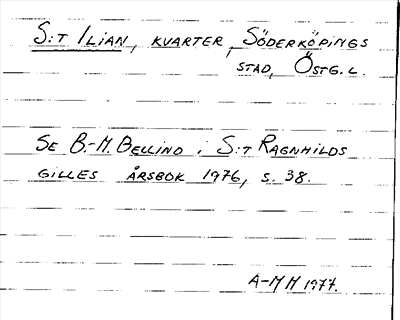 S:T ILIAN, KVARTER, SÖDERKÖPINGS
STAD, ÖSTG. L.
SE B.-M. BELLIND i S:T RAGNHILDS
GILLES ÅRSBOK 1976, S. 38.
A-MH 1977.